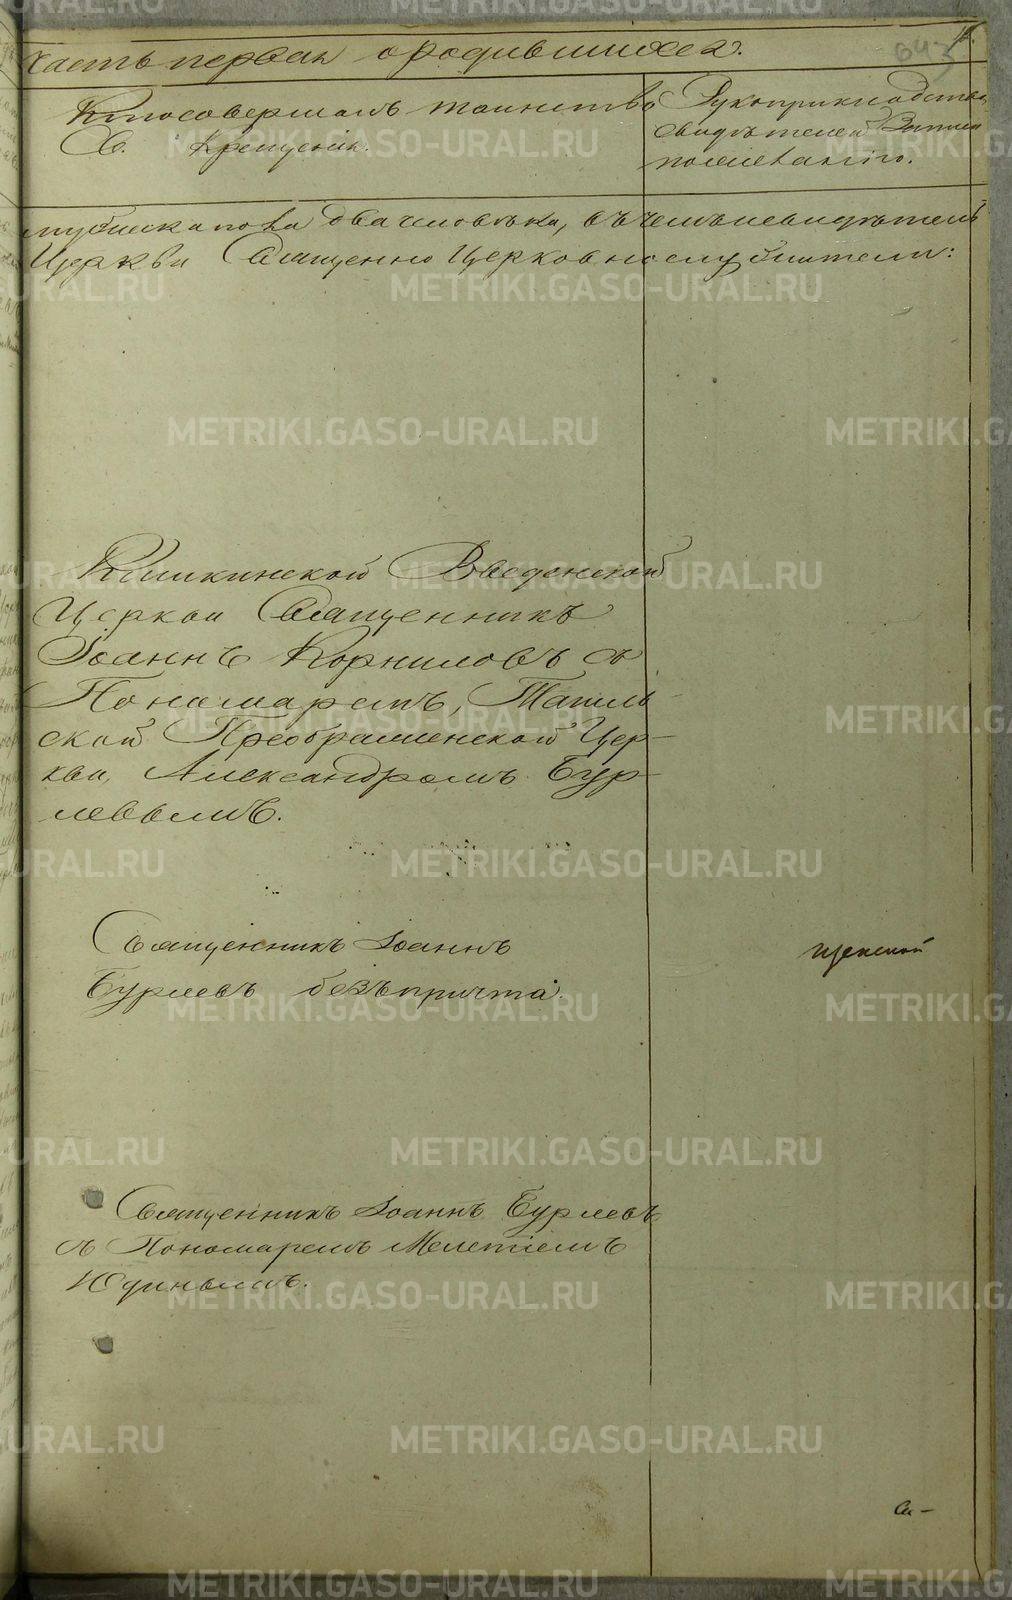 Часть первая о родившихся.
Кто совершалъ таинство
Св. Крещенія.
Рукоприкладство
свидѣтелей записи
по желанію.
мужеска пола два человѣка, въ чемъ и свидѣтель
Церкви Священно Церковнослужители:
Введенской
Церкви Священникъ
Іоаннъ Корниловъ съ
Пономаремъ, Тагиль
ской Преображенской Цер-
кви, Александромъ Бур-
левымъ.
Священникъ Іоаннъ
Бурлевъ безъ причта.
Священникъ Іоаннъ Бурлевъ
съ Пономаремъ Мелетіемъ
Юдинымъ.
METRIKI.GASO-URAL.RU